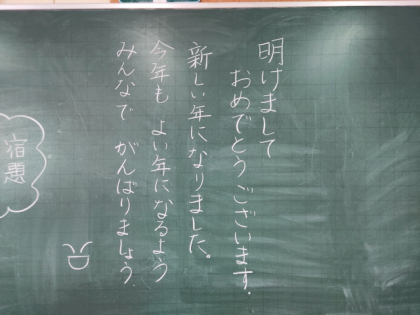 明けまして
おめでとうございます.
新しい年になりました。
今年も よい年になるよう
みんなで がんばりましょう.
宿題